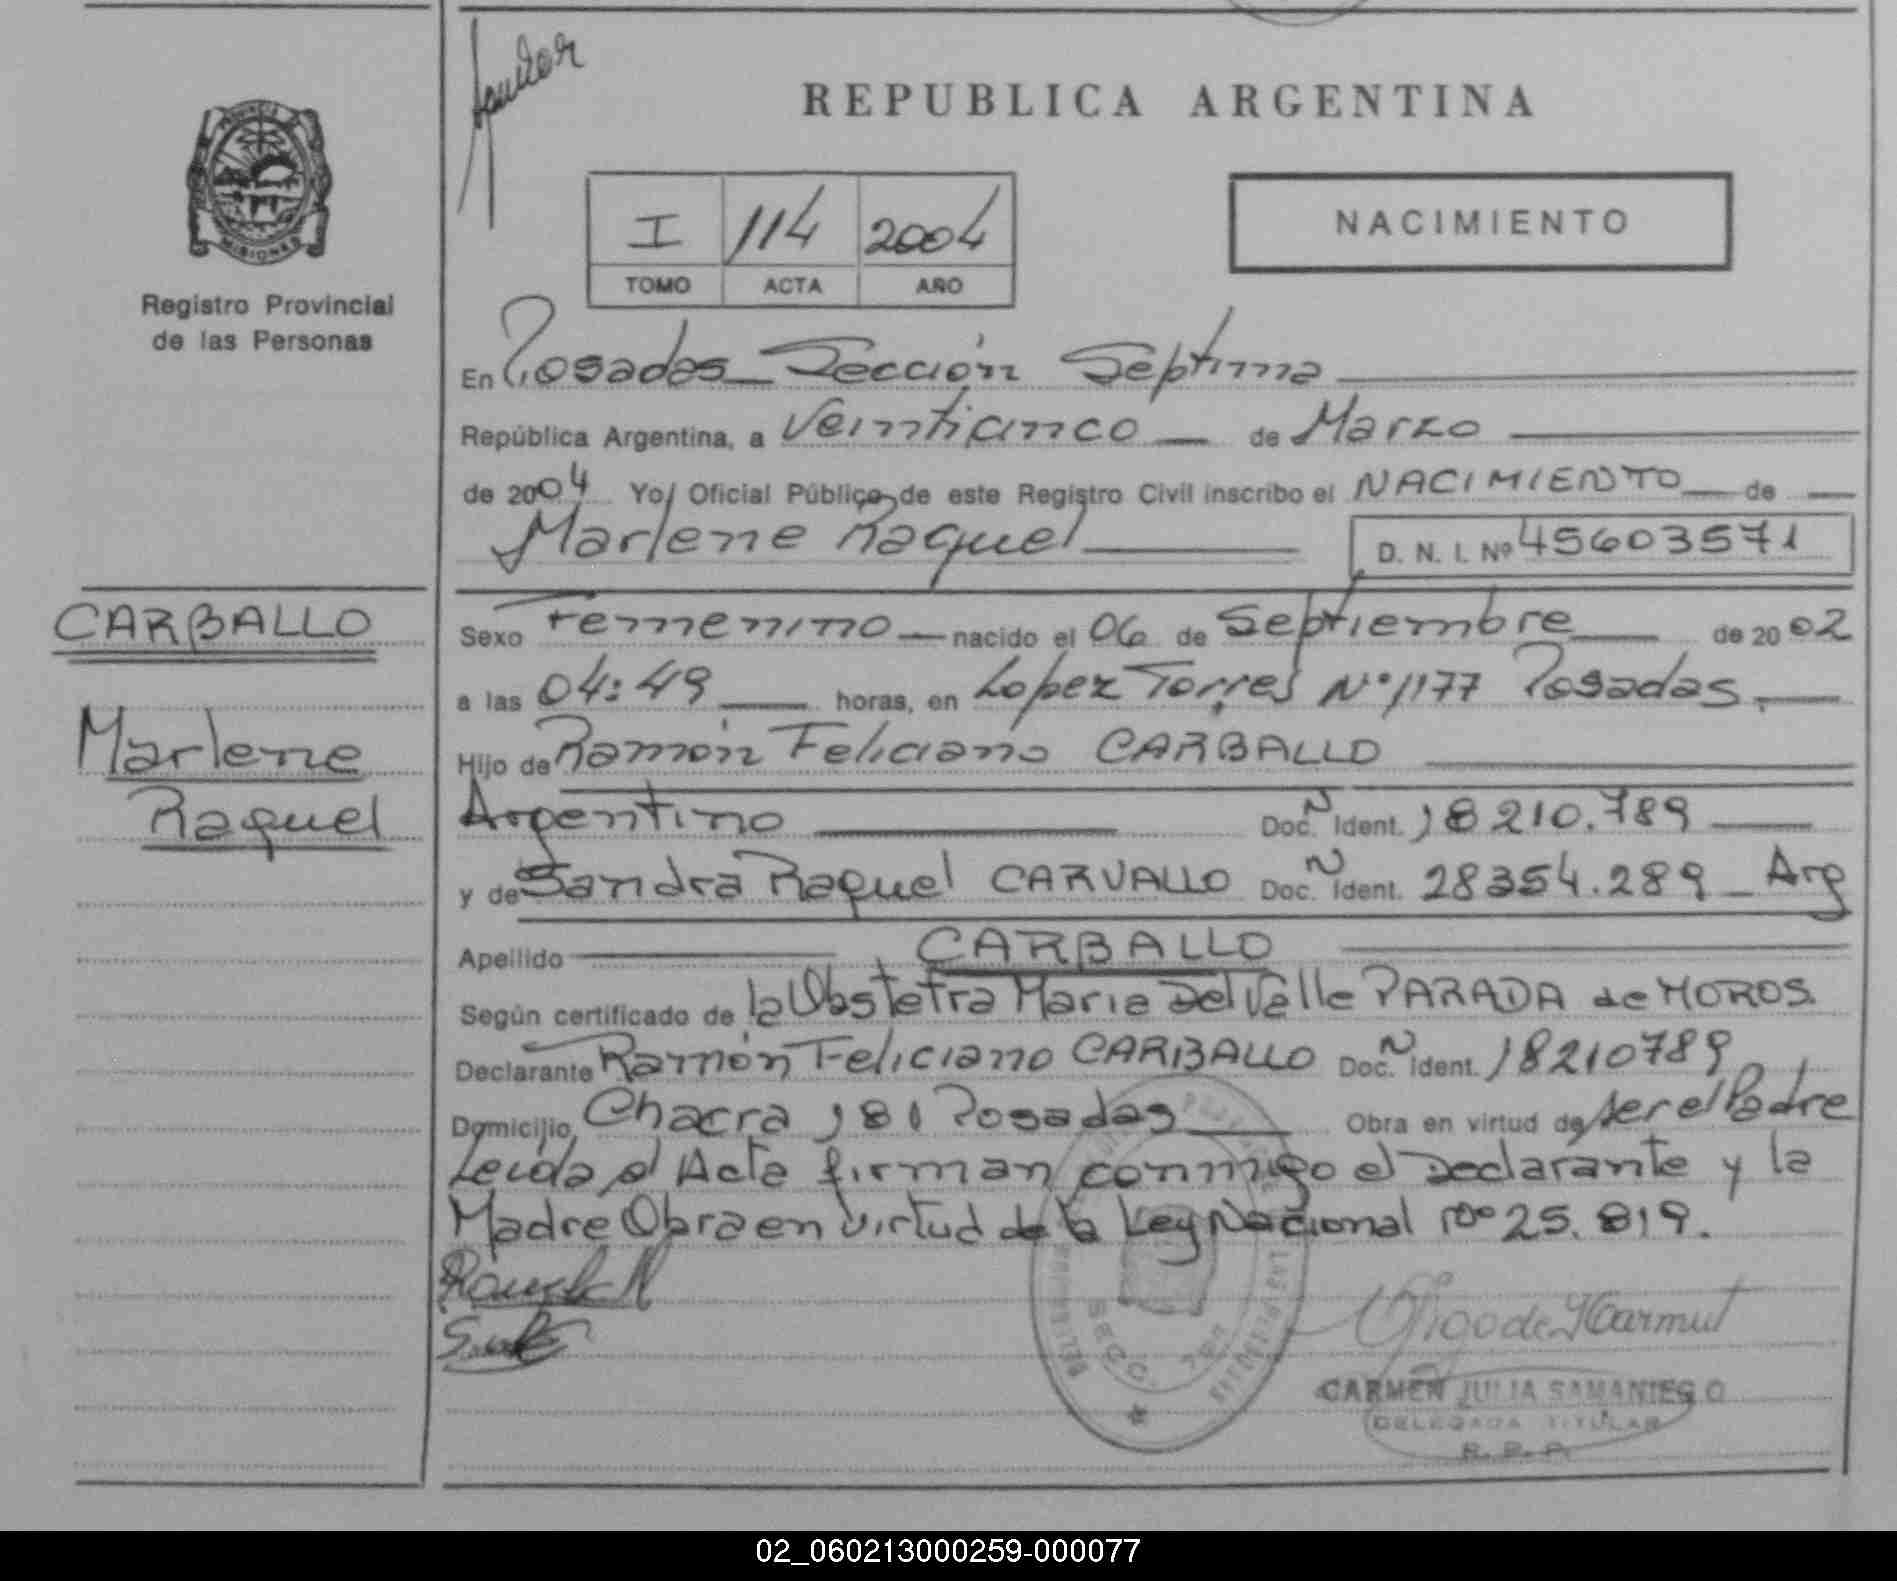 REPUBLICA ARGENTINA
PROVINCIA
MISIONES
Registro Provincial
de las Personas
I 114 2004
TOMO ACTA AÑO
NACIMIENTO
En Posadas Sección Septima
República Argentina, a Veinticinco de Marzo
de 2004 Yo, Oficial Público de este Registro Civil inscribo el NACIMIENTO de
Marlene Raquel D. N. I. Nº 45603571
CARBALLO
Marlene
Raquel
Sexo Femenino nacido el 06 de Septiembre de 2002
a las 04:49 horas, en Lopez Torres Nº 1177 Posadas.
Hijo de Ramón Feliciano CARBALLO
Argentino Doc. N Ident. 18210.789
y de Sandra Raquel CARVALLO Doc. N Ident. 28354.289 Arg
Apellido CARBALLO
Según certificado de la Obstetra Maria Del Valle PARADA de MOROS.
Declarante Ramón Feliciano CARBALLO Doc. N Ident. 18210789
Domicilio Chacra 181 Posadas Obra en virtud de ser el Padre
Leida el Acta firman conmigo el Declarante y la
Madre Obra en virtud de la Ley Nacional Nº 25.819.
CARMEN JULIA SAMANIEGO
DELEGADA TITULAR
R. P. P.
SECC. 7ma
02_060213000259-000077